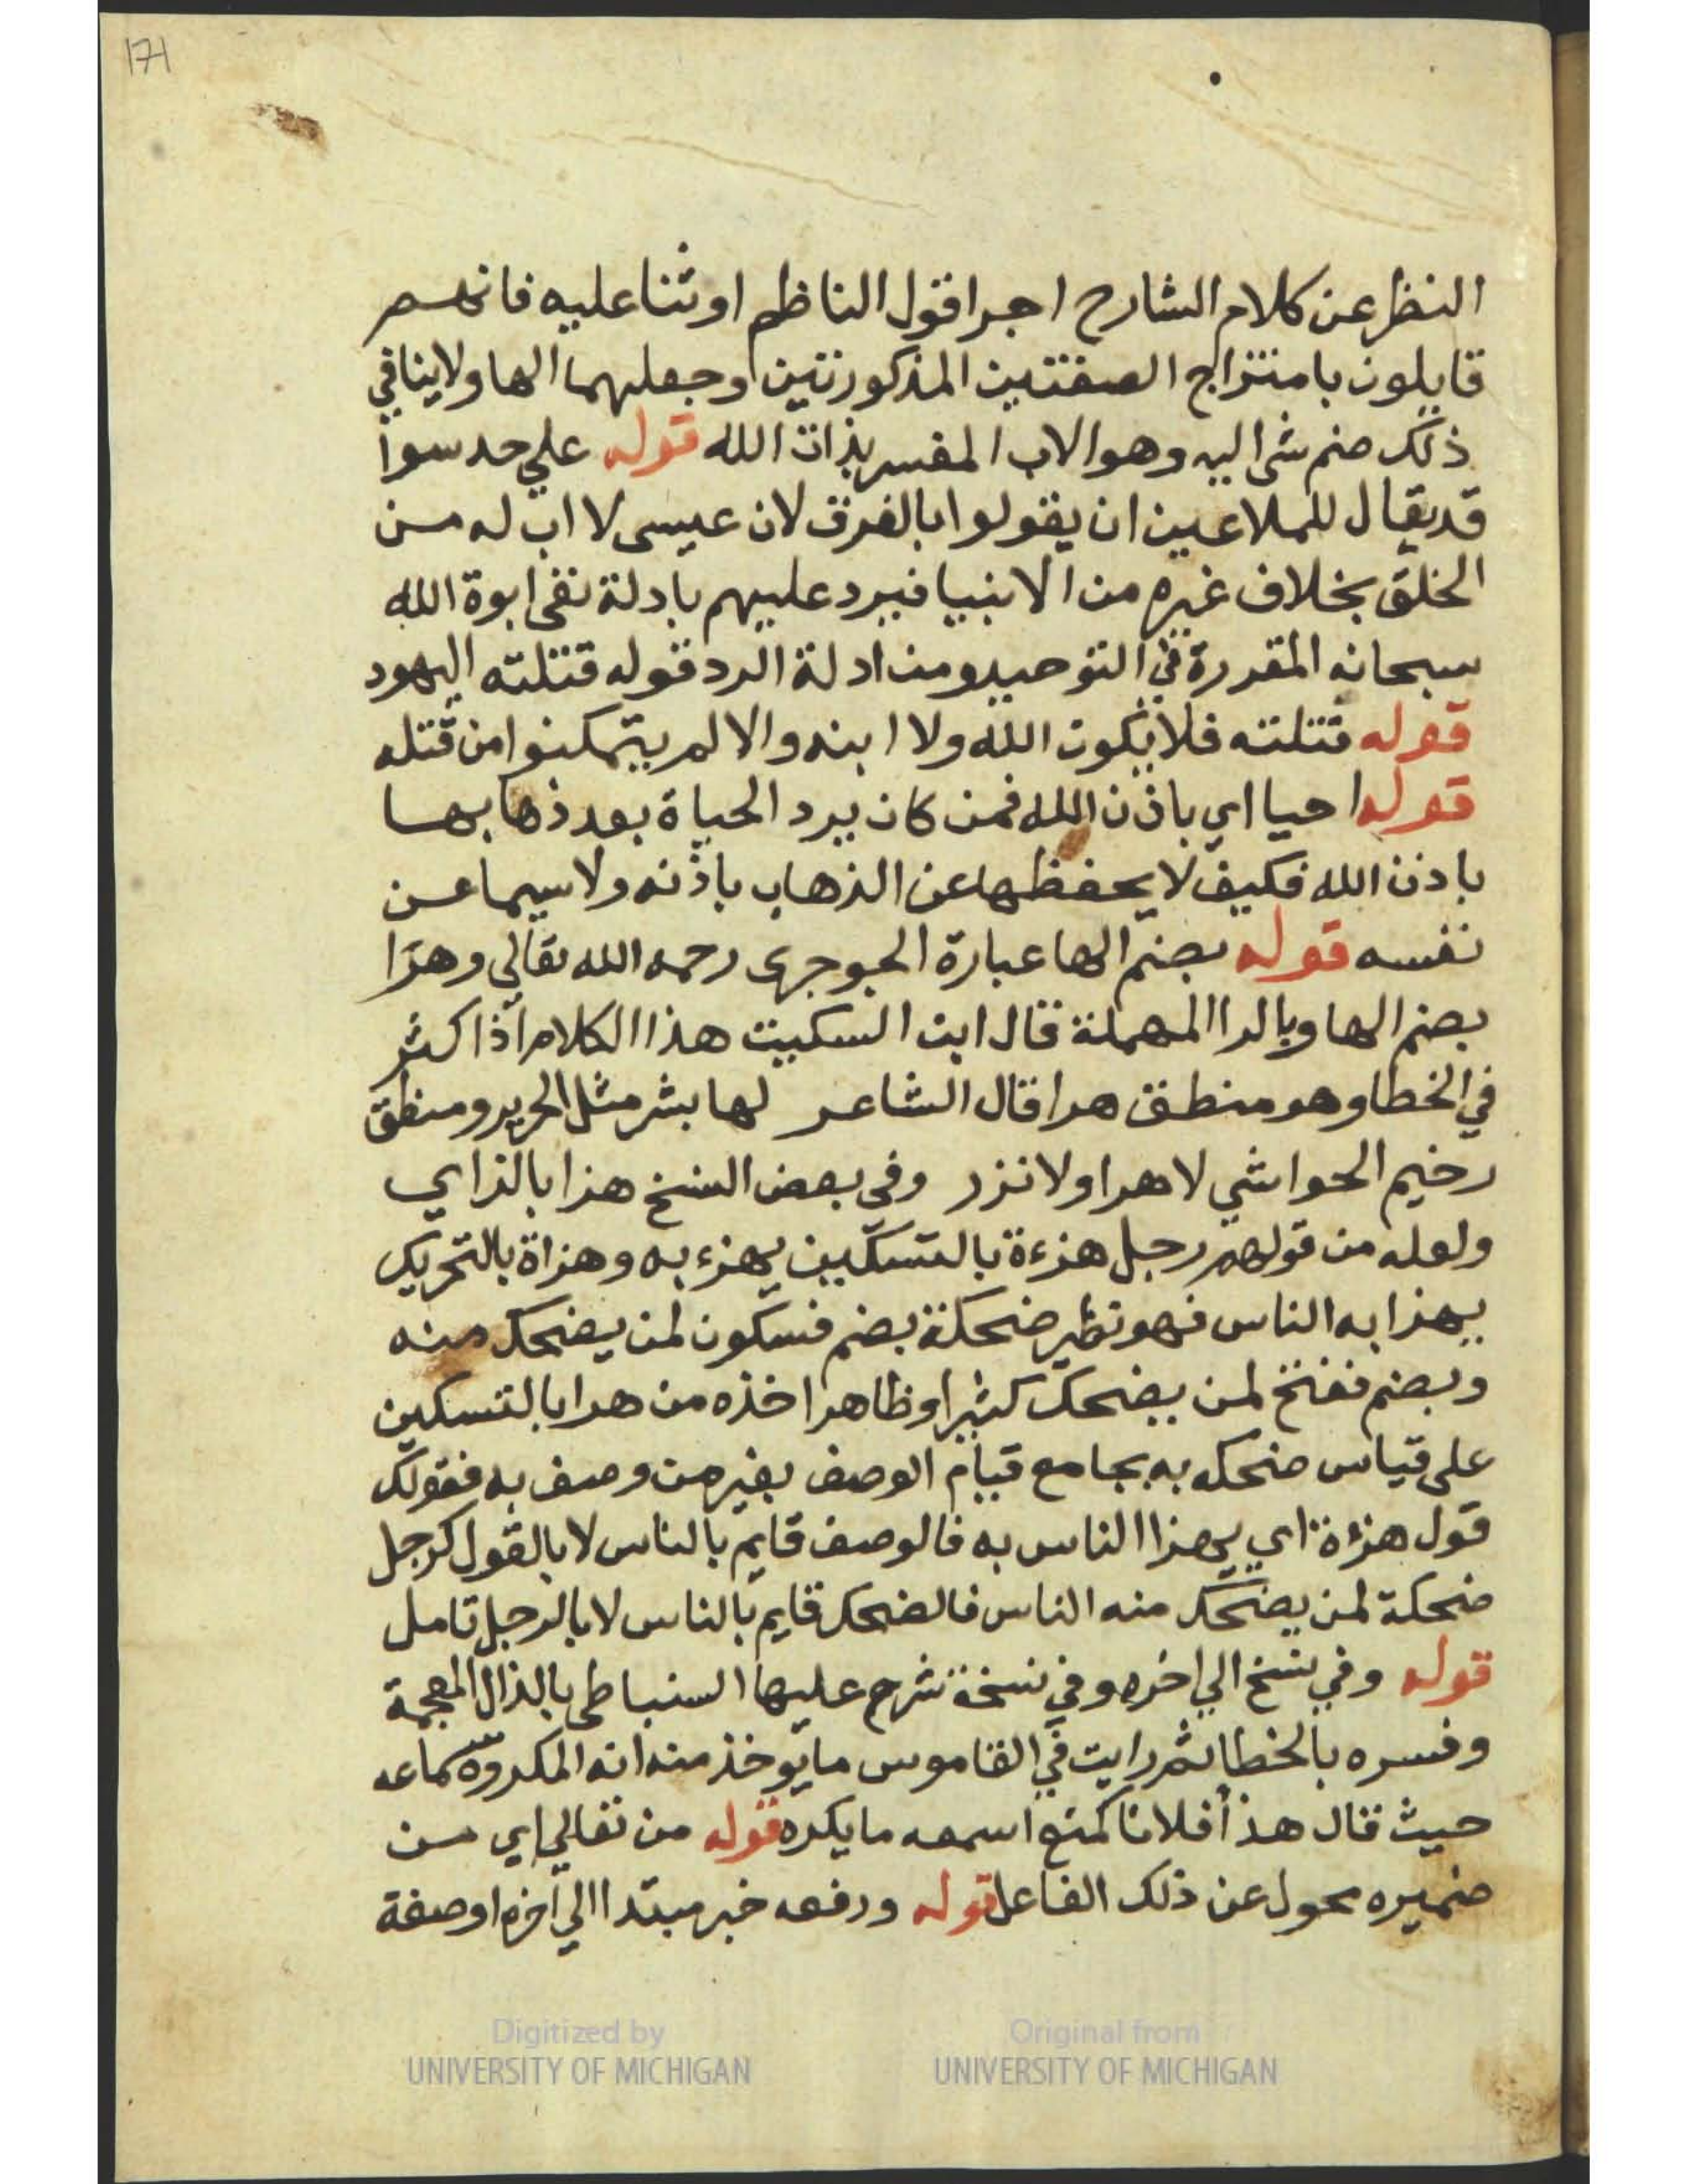 171
النظر عن كلام الشارح اجرا قول الناظم او ثنا عليه فانهم
قايلون بامتزاج الصفتين المذكورتين وجعلهما الها ولا ينافي
ذلك ضم شى اليه وهو الاب المفسر بذات الله قوله علي حد سوا
قد يقال للملاعين ان يقولوا بالفرق لان عيسى لا اب له من
الخلق بخلاف غيره من الانبيا فيرد عليهم بادلة نفى ابوة الله
سبحانه المقررة في التوحيد ومن ادلة الرد قوله قتلته اليهود
قوله قتلته فلا يكون الله ولا ابنه والا لم يتمكنوا من قتله
قوله احيا اي باذن الله فمن كان يرد الحياة بعد ذهابها
باذن الله فكيف لا يحفظها عن الذهاب باذنه ولا سيما عن
نفسه قوله بضم الها عبارة الجوجرى رحمه الله تعالي وهرا
بضم الها وبالرا المهملة قال ابن السكيت هذا الكلام اذا اكثر
في الخطا وهو منطق هرا قال الشاعر لها بشر مثل الحرير ومنطق
رخيم الحواشي لا هرا ولا نزر وفي بعض النسخ هزا بالزاي
ولعله من قولهم رجل هزءة بالتسكين يهزء به وهزاة بالتحريك
يهزا به الناس فهو نظير ضحكة بضم فسكون لمن يضحك منه
وبضم ففتح لمن يضحك كثيرا وظاهر اخذه من هرا بالتسكين
على قياس ضحكه به بجامع قيام الوصف بغير من وصف به فقولك
قول هزءة اي يهزا الناس به فالوصف قايم بالناس لا بالقول كرجل
ضحكة لمن يضحك منه الناس فالضحك قايم بالناس لا بالرجل تامل
قوله وفي نسخ الي اخره وفي نسخة شرح عليها السنباطى بالذال المعجمة
وفسره بالخطا ثم رايت في القاموس ما يوخذ منه انه المكروه سماعه
حيث قال هذأ فلانا كمنع اسمعه ما يكره قوله من تعالي اي من
ضميره محول عن ذلك الفاعل قوله ورفعه خبر مبتدا الي اخره او صفة
Digitized by
UNIVERSITY OF MICHIGAN
Original from
UNIVERSITY OF MICHIGAN